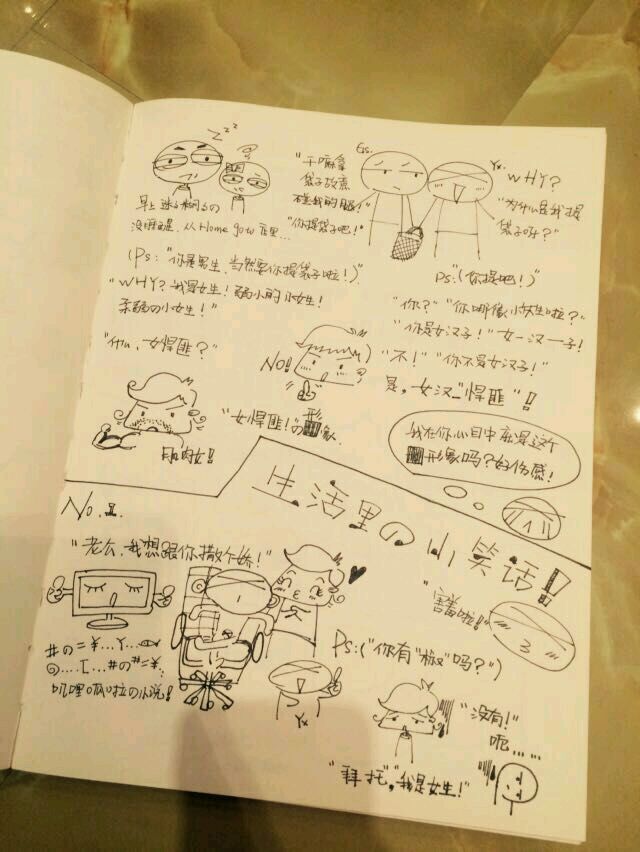 zzz
早上迷了糊了の
没睡醒, 从Home go to 店里...
"干嘛拿
袋子故意
撞我的腿!"
"你提袋子吧!"
Es.
Yx.
WHY?
"为什么是我提
袋子呀?"
(Ps: "你是男生,当然要你提袋子啦!")
"WHY? 我是女生! 弱小的小女生!
柔弱の小女生!"
Ps:(你提吧!)"
"你?" "你哪像小女生啦?"
"你是女汉子! 女一汉一子!
"不!" "你不是女汉子!"
是,女汉-"悍匪"!!
"什么,女悍匪?"
NO!
"女悍匪!"の形象.
肌肉女!
我在你心目中就是这个
形象吗?好伤感!
生活里の小笑话!!
No.1.
"老公,我想跟你撒个娇!"
#の=¥...Y...
...I...#の#=¥.
叽哩呱啦の小说!
Yx
"害羞啦!"
Ps:("你有"椒"吗?")
"没有!"
呃......
"拜托","我是女生!"